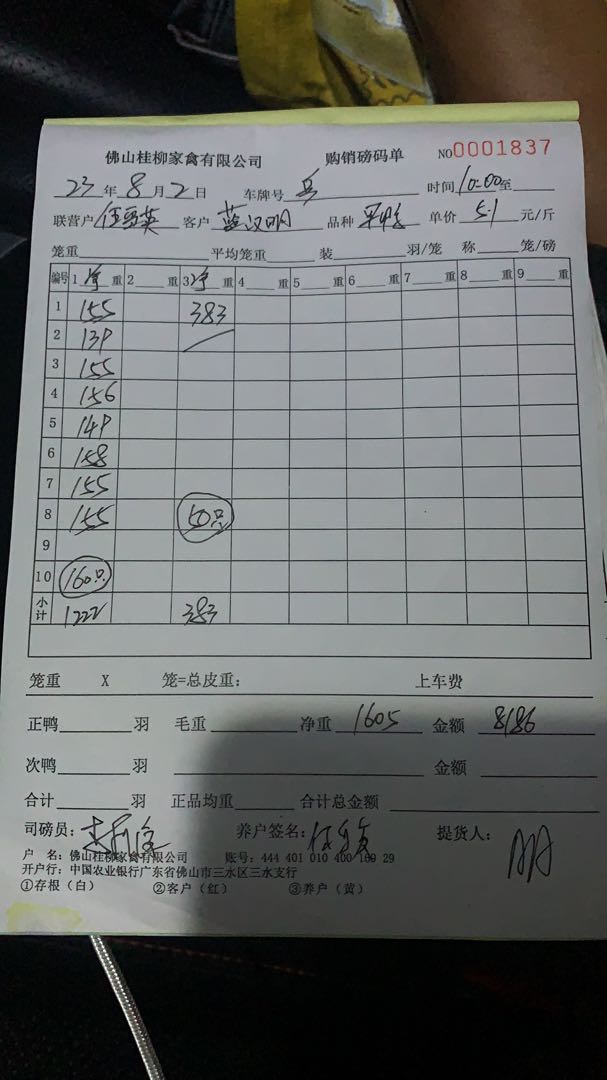 佛山桂柳家禽有限公司 购销磅码单 NO0001837
23年8月2日 车牌号 时间10:00至
联营户 英 客户 蓝汉明 品种 单价 5.1 元/斤
笼重 平均笼重 装 羽/笼 称 笼/磅
编号 1净重 2 重 3净重 4 重 5 重 6 重 7 重 8 重 9 重
1 155 383
2 139
3 155
4 156
5 149
6 158
7 155
8 155 50只
9
10 160只
小计 1222 383
笼重 X 笼=总皮重: 上车费
正鸭 羽 毛重 净重 1605 金额 8186
次鸭 羽 金额
合计 羽 正品均重 合计总金额
司磅员: 养户签名: 提货人:
户 名: 佛山桂柳家禽有限公司 账号: 444 401 010 400 169 29
开户行: 中国农业银行广东省佛山市三水区三水支行
①存根(白) ②客户(红) ③养户(黄)